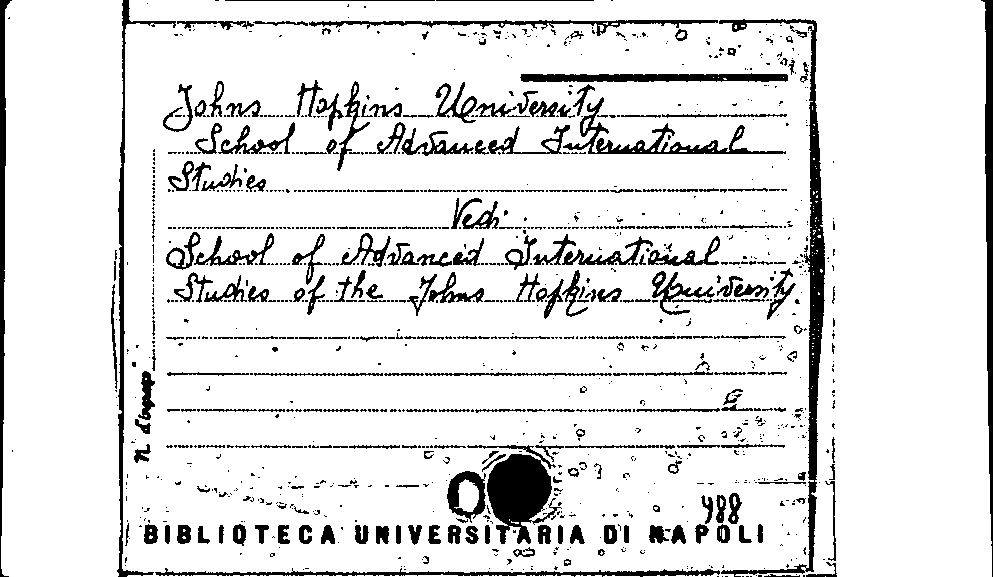 Johns Hopkins University
School of Advanced International
Studies
Vedi:
School of Advanced International
Studies of the Johns Hopkins University
N. d'ingresso
988
BIBLIOTECA UNIVERSITARIA DI NAPOLI